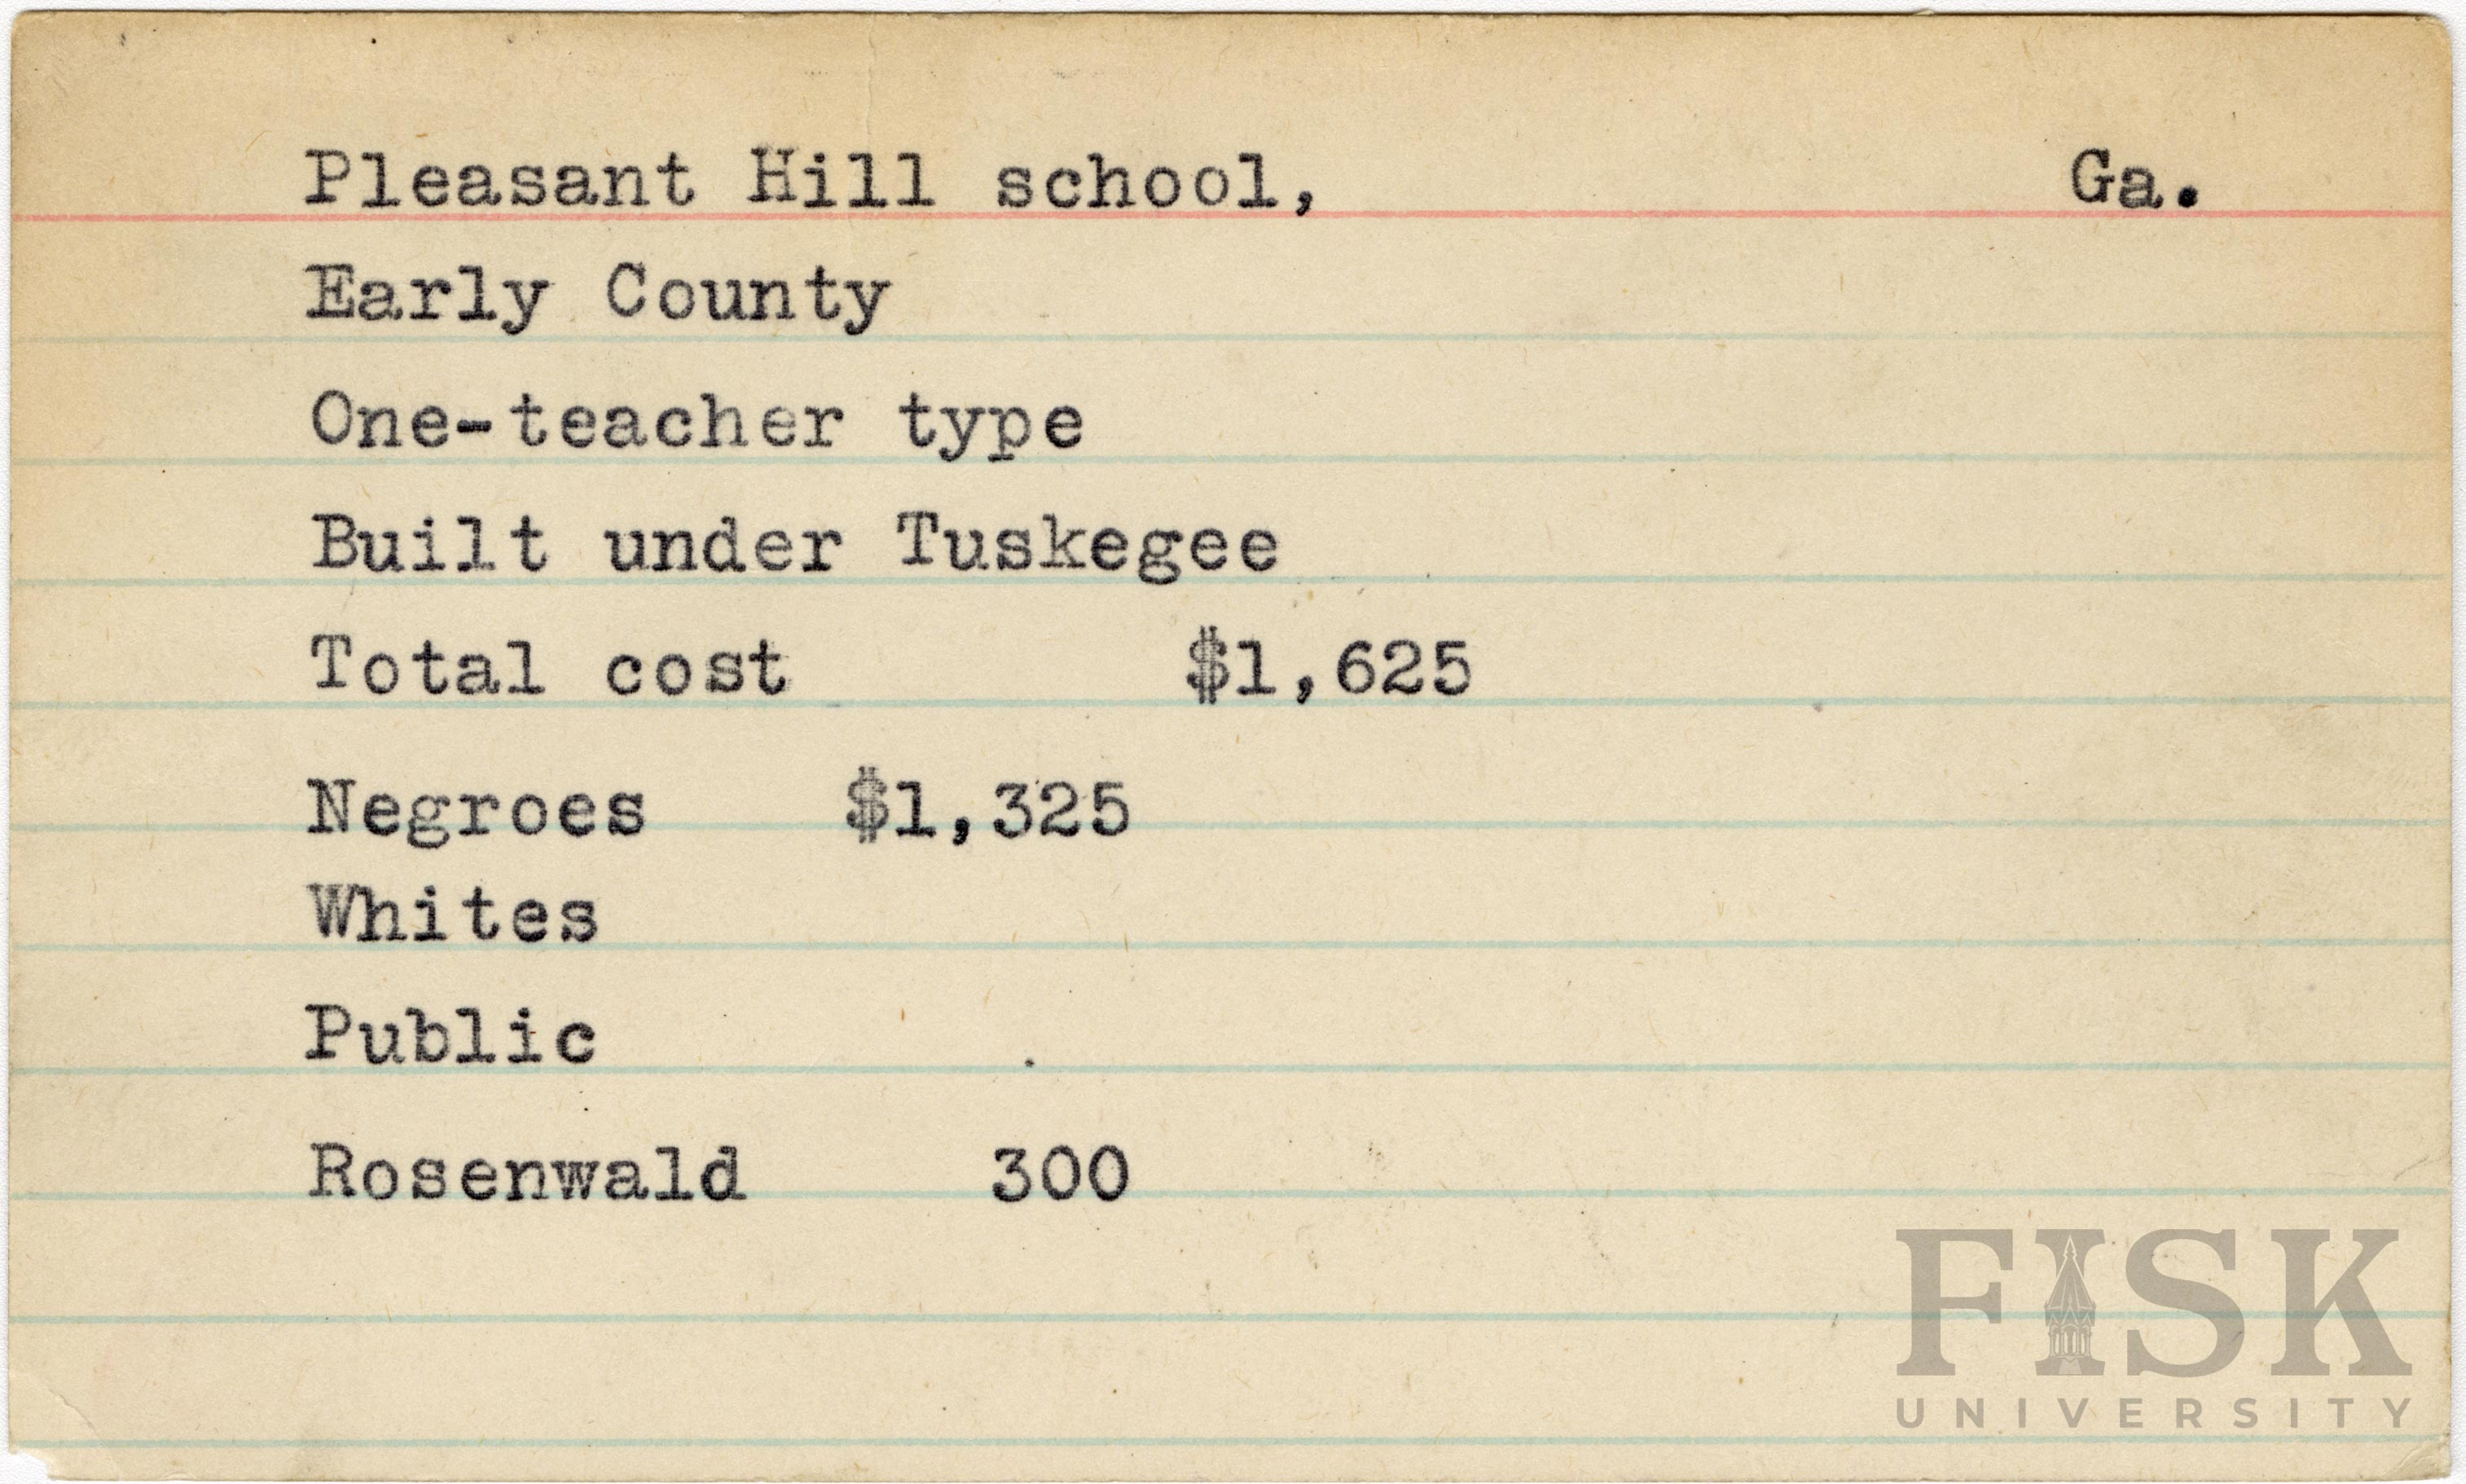 Pleasant Hill school, Ga.
Early County
One-teacher type
Built under Tuskegee
Total cost $1,625
Negroes $1,325
Whites
Public
Rosenwald 300
FISK
UNIVERSITY